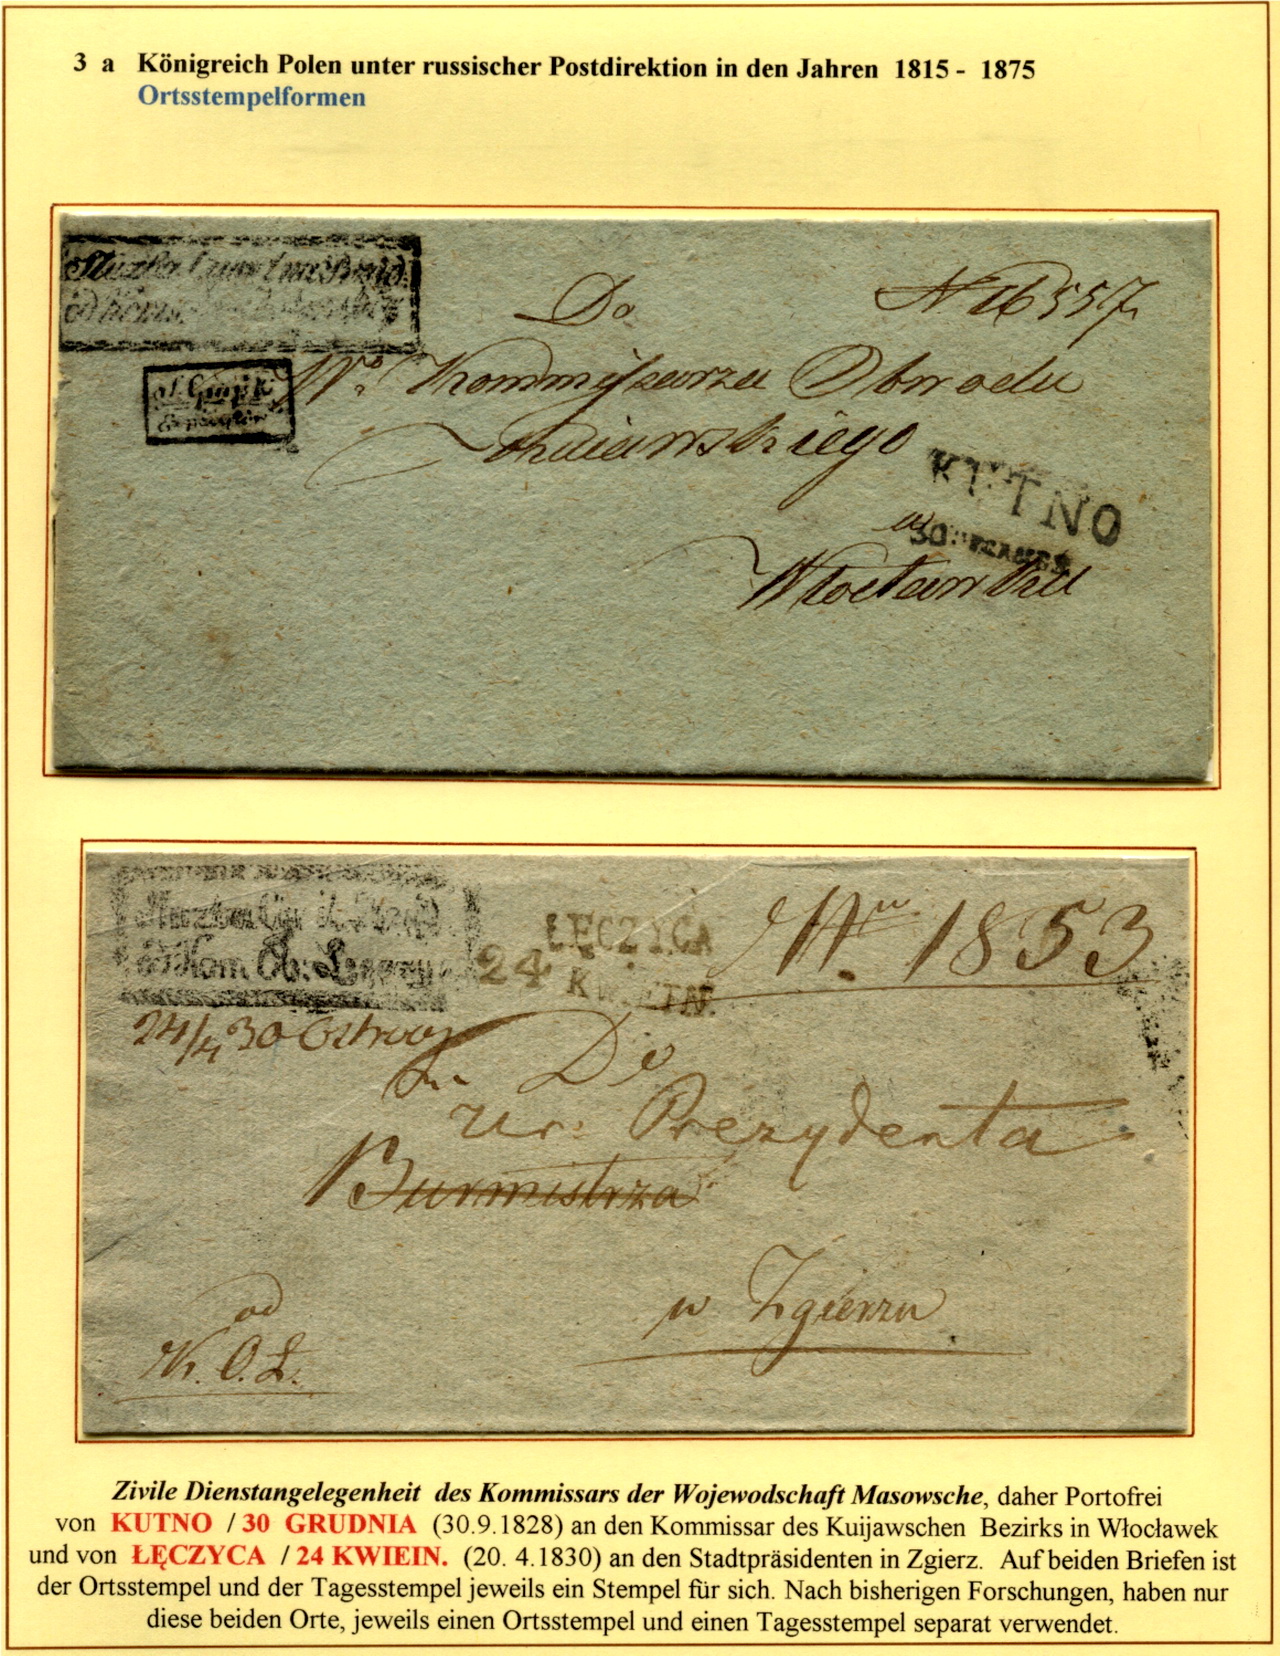 3 a Königreich Polen unter russischer Postdirektion in den Jahren 1815 - 1875
Ortsstempelformen
Do
N 16557
Kommissarza Obwodu
Kuiawskiego
KUTNO
w
30
ŁĘCZYCA
24 KWIETN.
1853
24/4 30
Do
Ur: Prezydenta
Burmistrza
w Zgierzu
od
K. O. Ł.
Zivile Dienstangelegenheit des Kommissars der Wojewodschaft Masowsche, daher Portofrei
von KUTNO / 30 GRUDNIA (30.9.1828) an den Kommissar des Kuijawschen Bezirks in Włocławek
und von ŁĘCZYCA / 24 KWIEIN. (20. 4.1830) an den Stadtpräsidenten in Zgierz. Auf beiden Briefen ist
der Ortsstempel und der Tagesstempel jeweils ein Stempel für sich. Nach bisherigen Forschungen, haben nur
diese beiden Orte, jeweils einen Ortsstempel und einen Tagesstempel separat verwendet.